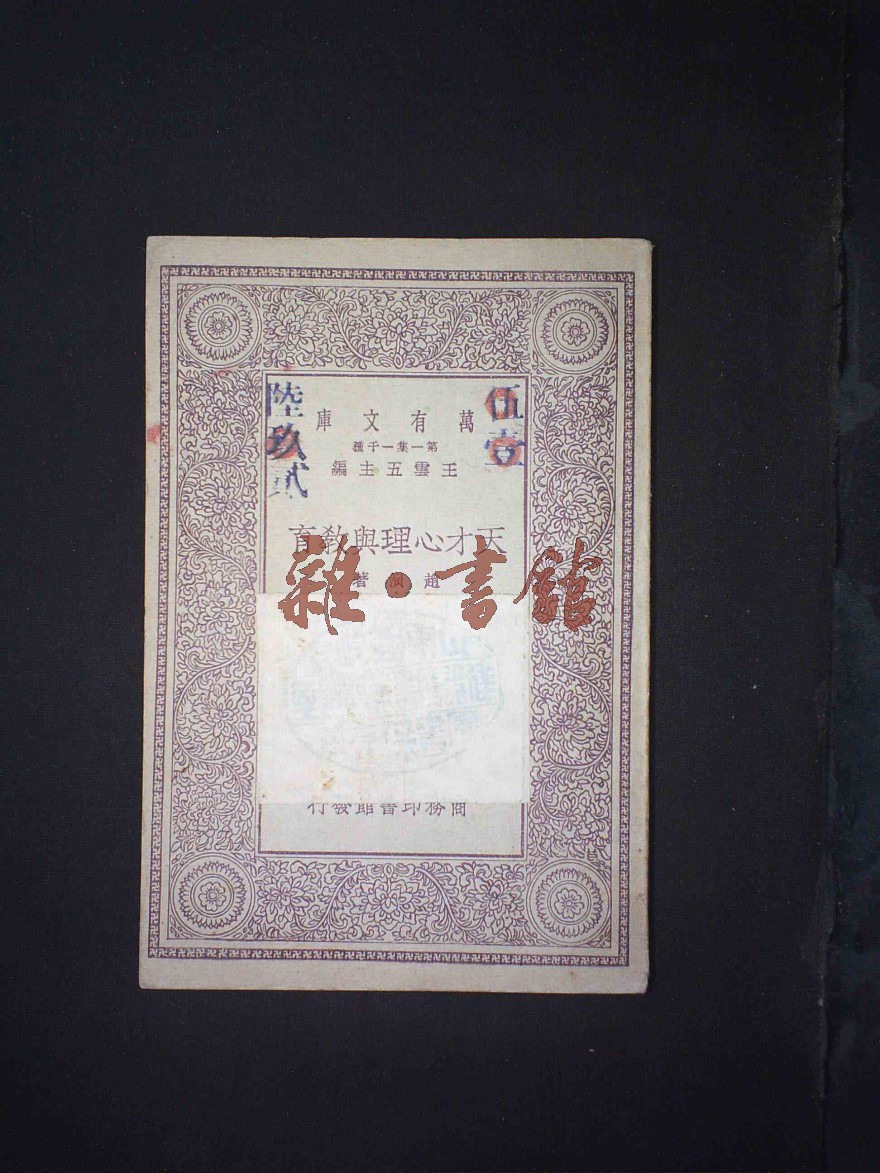 萬有文庫
第一集一千種
王雲五主編
天才心理與教育
趙演著
商務印書館發行
伍壹
陸玖貳
雜·書館